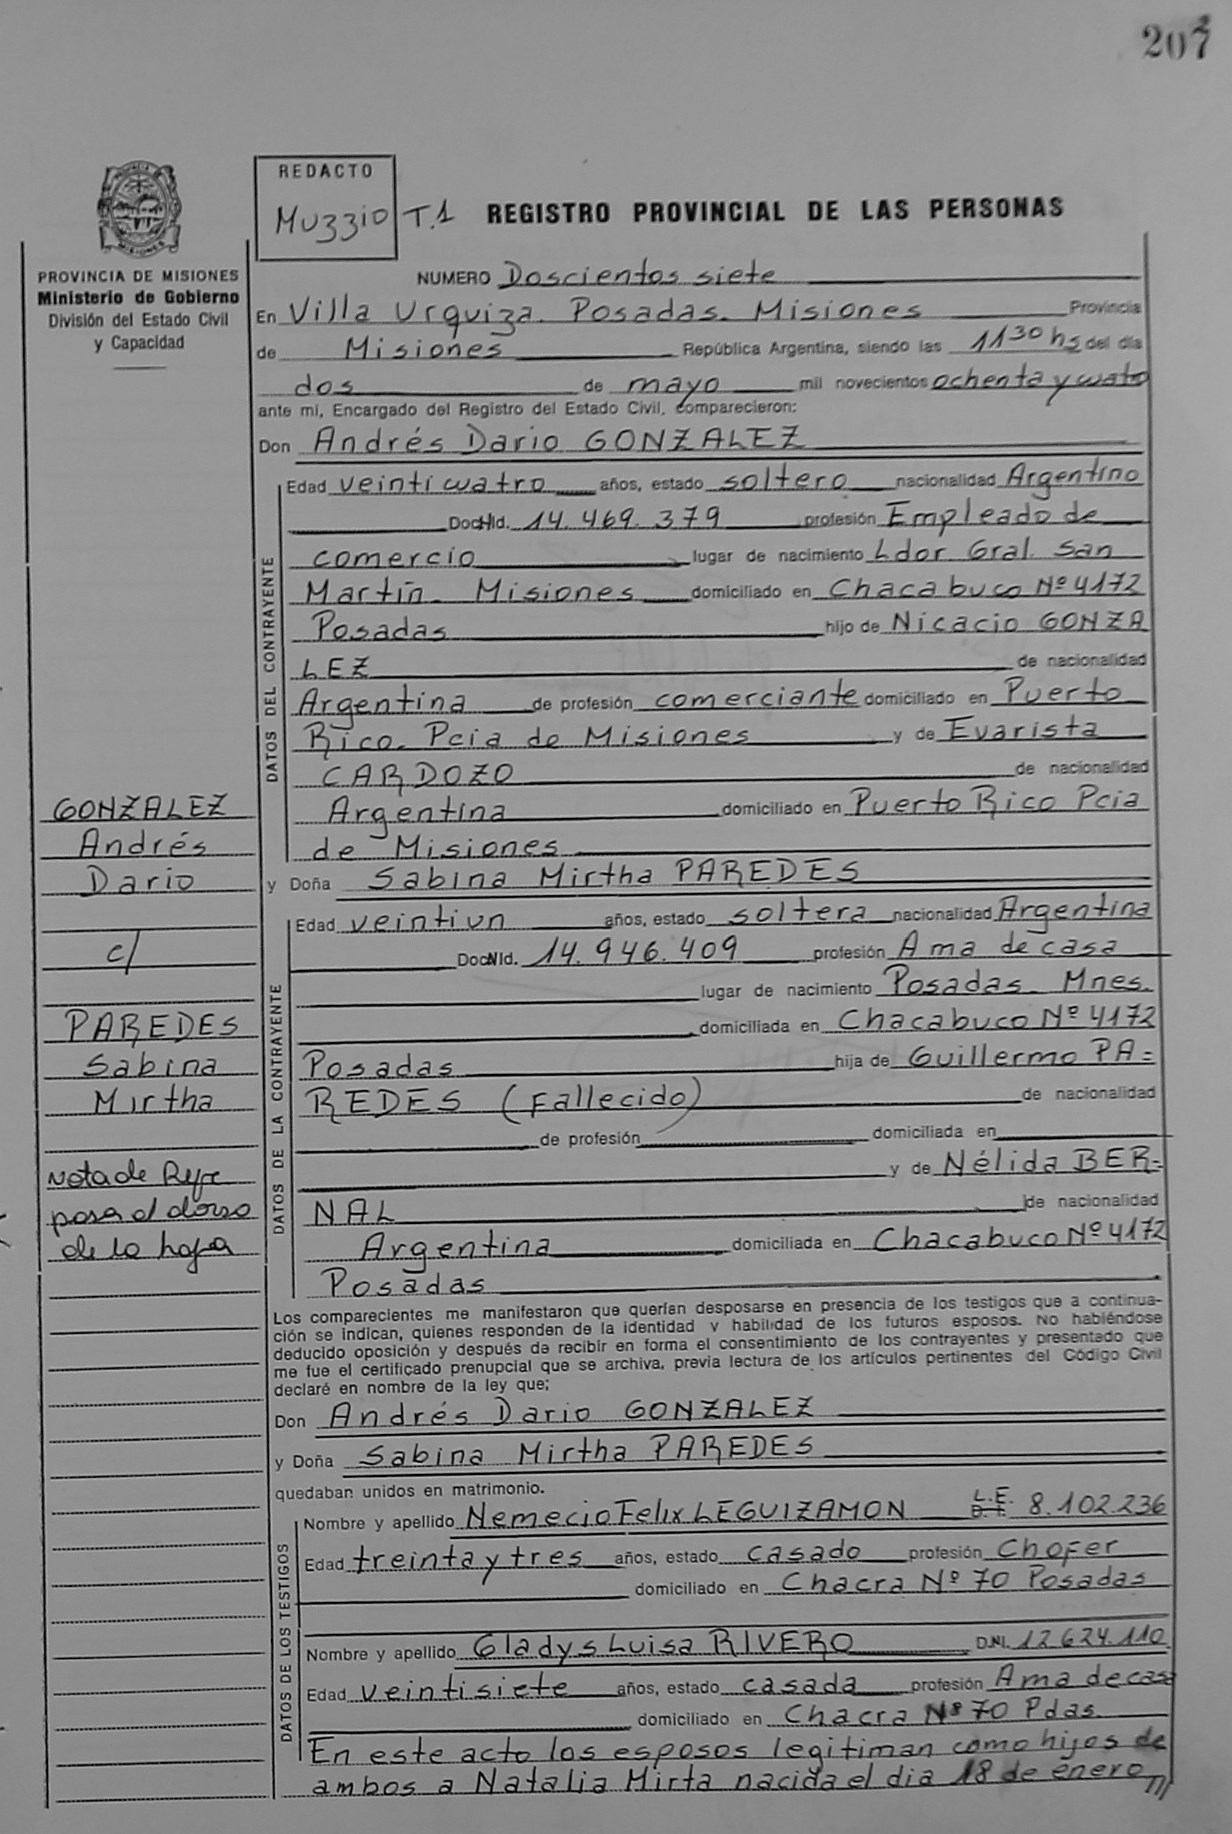 207
REDACTO
MUZZIO T.1
REGISTRO PROVINCIAL DE LAS PERSONAS
PROVINCIA DE MISIONES
Ministerio de Gobierno
División del Estado Civil
y Capacidad
NUMERO Doscientos siete
En Villa Urquiza. Posadas. Misiones Provincia
de Misiones República Argentina, siendo las 11 30 hs del día
dos de mayo mil novecientos ochenta y cuatro
ante mí, Encargado del Registro del Estado Civil, comparecieron:
Don Andrés Dario GONZALEZ
DATOS DEL CONTRAYENTE
Edad veinticuatro años, estado soltero nacionalidad Argentino
Doc.Nld. 14.469.379 profesión Empleado de
comercio lugar de nacimiento Ldor Gral. San
Martín - Misiones domiciliado en Chacabuco Nº 4172
Posadas hijo de Nicacio GONZA
LEZ de nacionalidad
Argentina de profesión comerciante domiciliado en Puerto
Rico. Pcia de Misiones y de Evarista
CARDOZO de nacionalidad
Argentina domiciliado en Puerto Rico Pcia
de Misiones
y Doña Sabina Mirtha PAREDES
GONZALEZ
Andrés
Dario
c/
PAREDES
Sabina
Mirtha
Nota de
pasa al dorso
de la hoja
DATOS DE LA CONTRAYENTE
Edad veintiun años, estado soltera nacionalidad Argentina
DocNld. 14.946.409 profesión Ama de casa
lugar de nacimiento Posadas - Mnes.
domiciliada en Chacabuco Nº 4172
Posadas hija de Guillermo PA=
REDES (Fallecido) de nacionalidad
de profesión domiciliada en
y de Nélida BER=
NAL de nacionalidad
Argentina domiciliada en Chacabuco Nº 4172
Posadas
Los comparecientes me manifestaron que querían desposarse en presencia de los testigos que a continua-
ción se indican, quienes responden de la identidad y habilidad de los futuros esposos. No habiéndose
deducido oposición y después de recibir en forma el consentimiento de los contrayentes y presentado que
me fue el certificado prenupcial que se archiva, previa lectura de los artículos pertinentes del Código Civil
declaré en nombre de la ley que;
Don Andrés Dario GONZALEZ
y Doña Sabina Mirtha PAREDES
quedaban unidos en matrimonio.
DATOS DE LOS TESTIGOS
Nombre y apellido Nemecio Felix LEGUIZAMON L.E. 8.102.236
Edad treinta y tres años, estado casado profesión Chofer
domiciliado en Chacra Nº 70 Posadas
Nombre y apellido Gladys Luisa RIVERO D.N.I. 12.624.110
Edad veintisiete años, estado casada profesión Ama de casa
domiciliado en Chacra Nº 70 Pdas.
En este acto los esposos legitiman como hijos de
ambos a Natalia Mirta nacida el dia 18 de enero ///